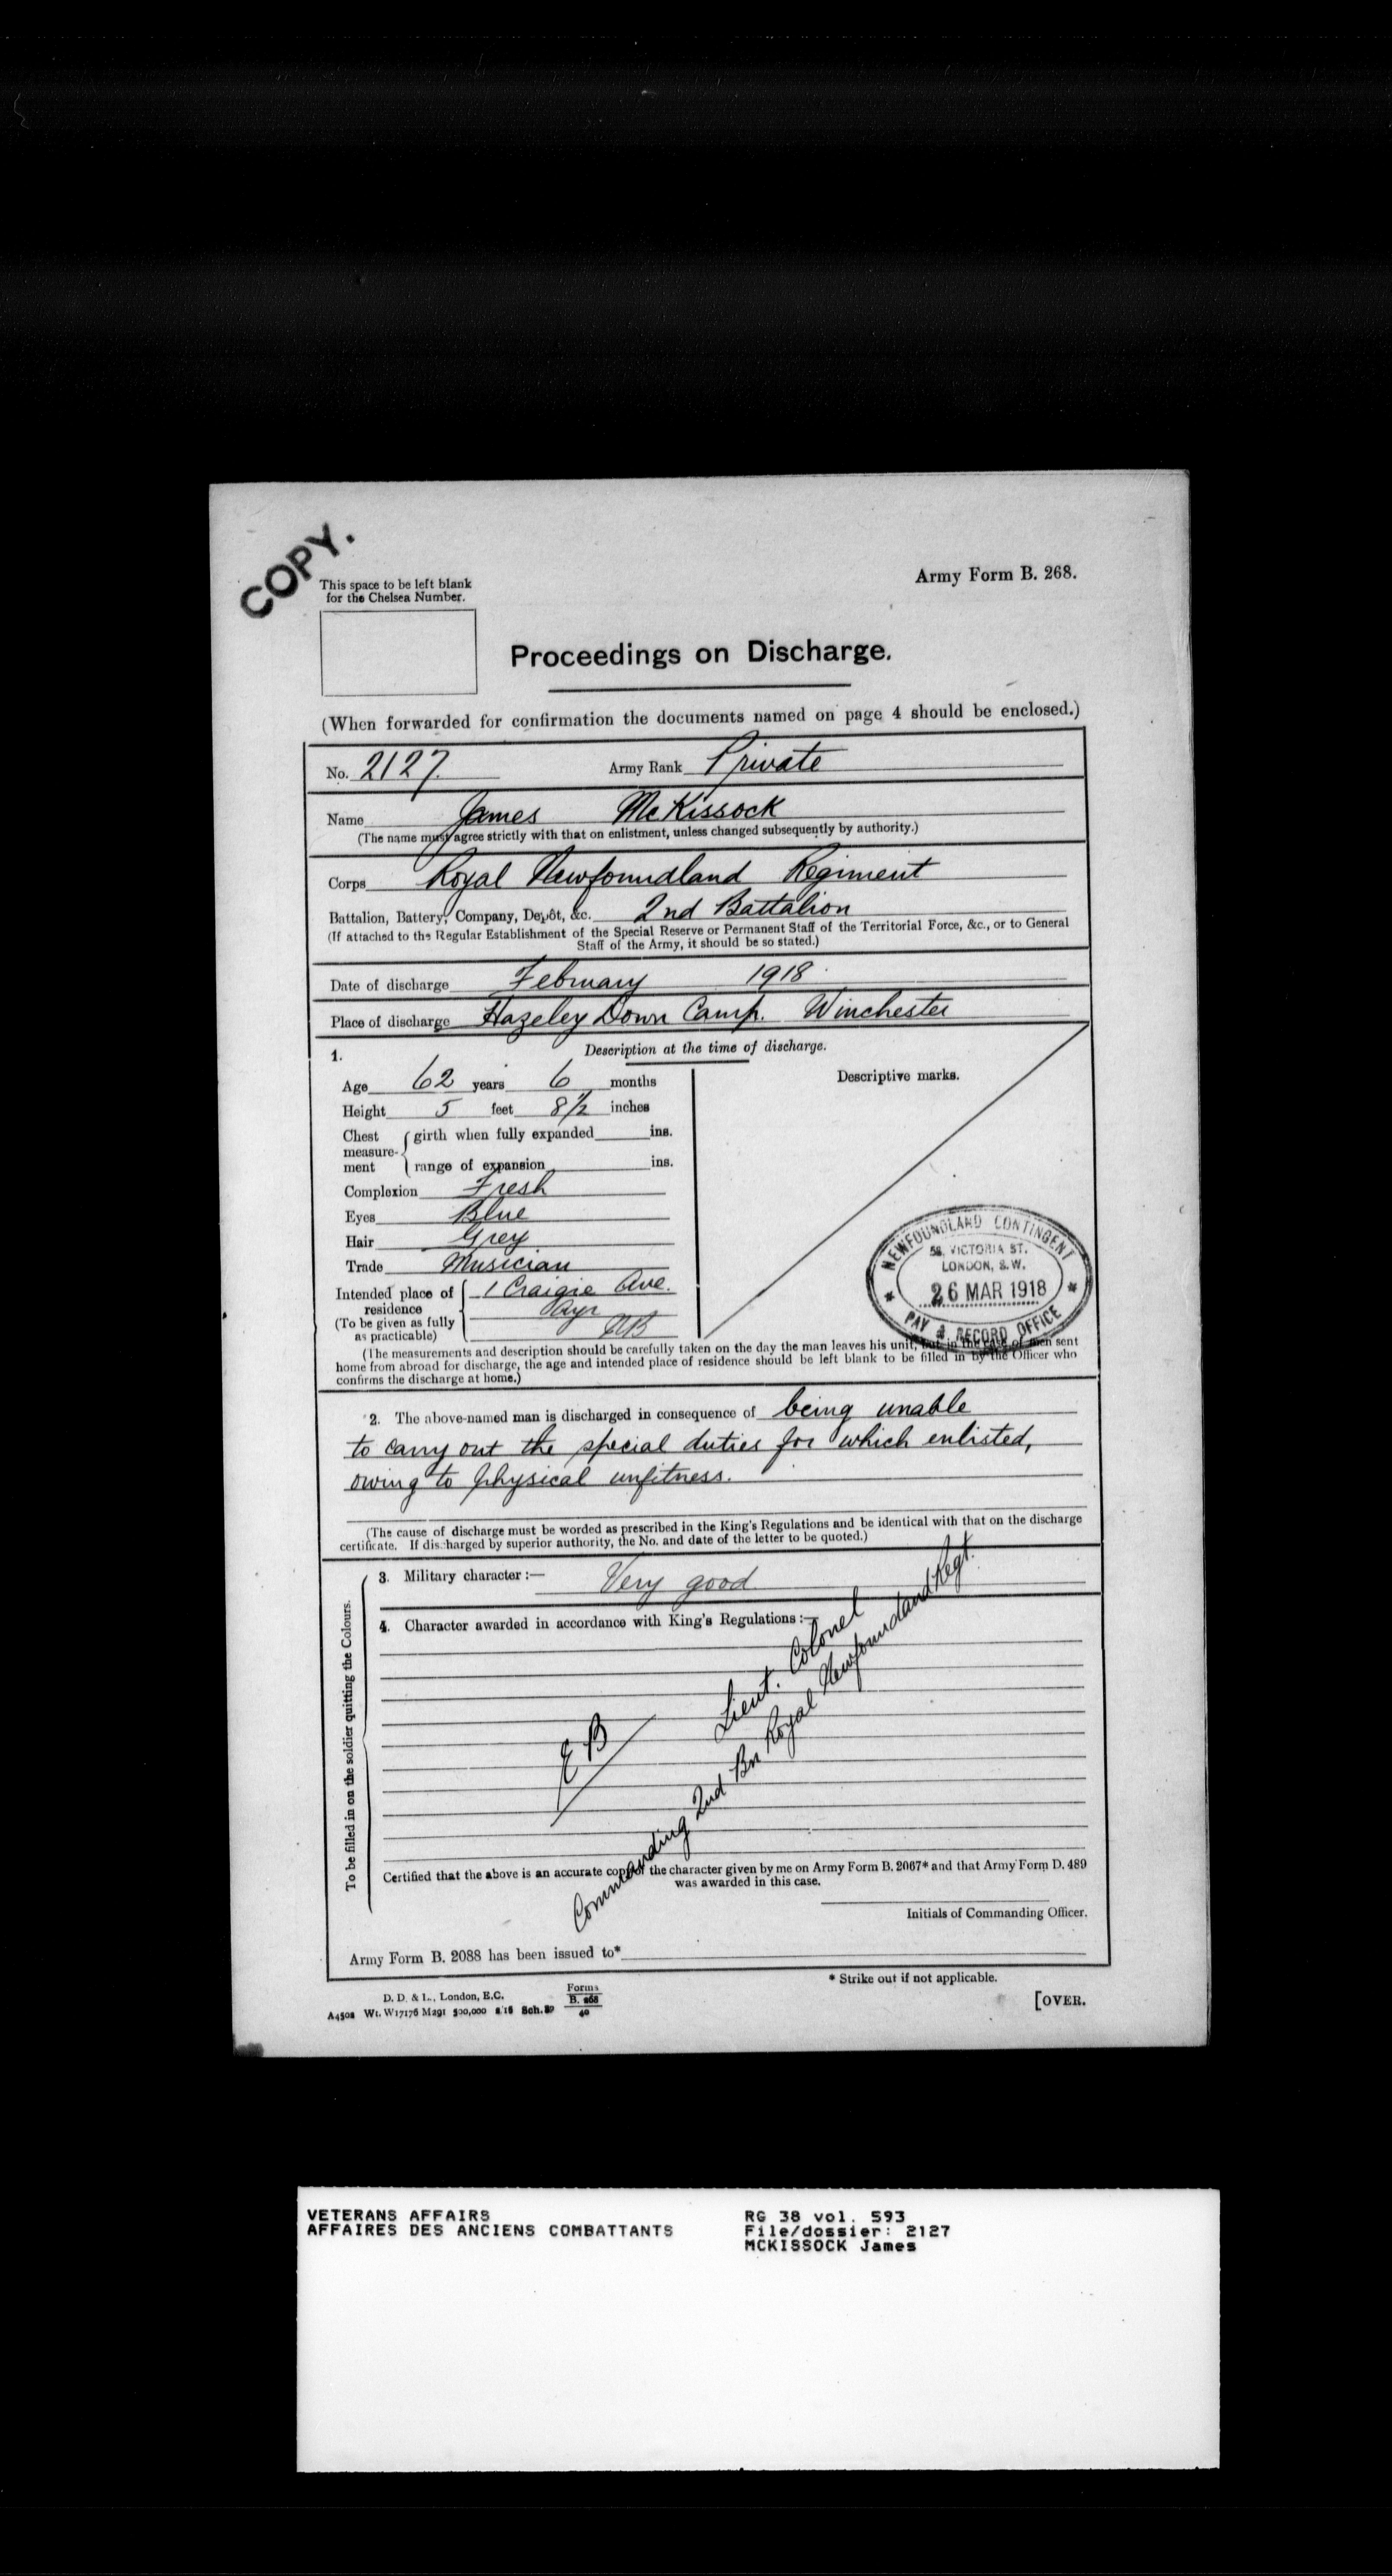 COPY.
This space to be left blank
for the Chelsea Number.
Army Form B. 268.
Proceedings on Discharge.
(When forwarded for confirmation the documents named on page 4 should be enclosed.)
No. 2127. Army Rank Private
Name James McKissock
(The name must agree strictly with that on enlistment, unless changed subsequently by authority.)
Corps Royal Newfoundland Regiment
Battalion, Battery, Company, Depôt, &c. 2nd Battalion
(If attached to the Regular Establishment of the Special Reserve or Permanent Staff of the Territorial Force, &c., or to General
Staff of the Army, it should be so stated.)
Date of discharge February 1918
Place of discharge Hazeley Down Camp. Winchester
1. Description at the time of discharge.
Age 62 years 6 months
Descriptive marks.
Height 5 feet 8½ inches
Chest measurement girth when fully expanded ins.
range of expansion ins.
Complexion Fresh
Eyes Blue
Hair Grey
Trade Musician
Intended place of residence 1 Craigie Ave.
(To be given as fully as practicable) Ayr
NEWFOUNDLAND CONTINGENT
58, VICTORIA ST.
LONDON, S.W.
26 MAR 1918
PAY & RECORD OFFICE
(The measurements and description should be carefully taken on the day the man leaves his unit, but in the case of men sent
home from abroad for discharge, the age and intended place of residence should be left blank to be filled in by the Officer who
confirms the discharge at home.)
2. The above-named man is discharged in consequence of being unable
to carry out the special duties for which enlisted,
owing to physical unfitness.
(The cause of discharge must be worded as prescribed in the King's Regulations and be identical with that on the discharge
certificate. If discharged by superior authority, the No. and date of the letter to be quoted.)
To be filled in on the soldier quitting the Colours.
3. Military character :— Very good
4. Character awarded in accordance with King's Regulations :—
E B
Lieut. Colonel
Commanding 2nd Bn Royal Newfoundland Regt.
Certified that the above is an accurate copy of the character given by me on Army Form B. 2067* and that Army Form D. 489
was awarded in this case.
Initials of Commanding Officer.
Army Form B. 2088 has been issued to*
* Strike out if not applicable.
D. D. & L., London, E.C.
A4508 Wt. W17176 M291 500,000 8/16 Sch. 89
Forms
B. 268
40
[OVER.
VETERANS AFFAIRS
AFFAIRES DES ANCIENS COMBATTANTS
RG 38 vol. 593
File/dossier: 2127
MCKISSOCK James